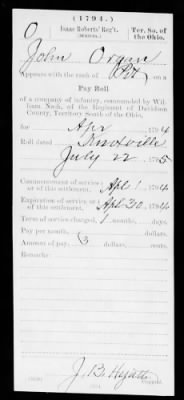 (1794.)
O Isaac Roberts' Reg't. Ter. So. of the Ohio.
John Organ
Appears with the rank of Pvt on
Pay Roll
of a company of infantry, commanded by Wil-
liam Nash, of the Regiment of Davidson
County, Territory South of the Ohio,
for Apr, 1794
Roll dated Knoxville
July 22, 1795
Commencement of service or of this settlement. Apl 1, 1794
Expiration of service or of this settlement. Apl 30, 1794
Term of service charged, 1 months, days.
Pay per month, dollars, cents.
Amount of pay, 3 dollars, cents.
Remarks:
J. B. Hyatt
Copyist.